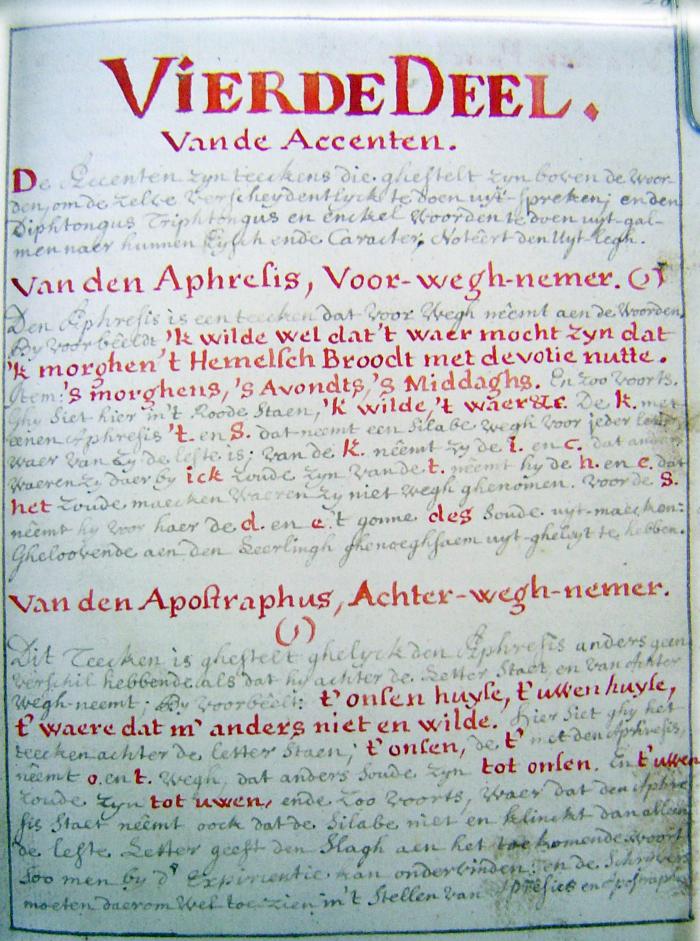 VIERDE DEEL.
Vande Accenten.
De Accenten zyn teeckens die ghestelt zyn boven de woor-
den, om de zelve verscheydentlyck te doen uyt-spreken; en den
Diphtongus Triphtongus en enckel woorden te doen uyt-gal-
men naer hunnen Eysch ende Caracter, Noteert den Uyt-legh.
Van den Aphresis, Voor-wegh-nemer. (')
Den Aphresis is een teecken dat voor wegh nêemt aen de woorden
By voorbeeldt 'k wilde wel dat't waer mocht zyn dat
'k morghen 't Hemelsch Broodt met devotie nutte.
Item: 's morghens, 's Avondts, 's Middaghs. En zoo voorts.
Ghy siet hier in't Roode Staen, 'k wilde, 't waer &c. De k. met
eenen Aphresis 't. en S. dat neemt een Silabe wegh voor jeder
waer van zy de leste is: van de k. nêemt zy de i. en c. dat
waeren zy daer by ick zoude zyn van de t. nêemt hy de h. en e. dat
het zoude maecken waeren zy niet wegh ghenomen. voor de s.
nêemt hy voor haer de d. en e. 't gonne des soude uyt-maecken:
Gheloovende aen den Leerlingh ghenoeghsaem uyt-gheleyt te hebben.
Van den Apostraphus, Achter-wegh-nemer.
(')
Dit Teecken is ghestelt ghelyck den Aphresis anders geen
verschil hebbende als dat hy achter de Letter Staet, en van Achter
wegh-neemt; By voorbeelt: t' onsen huyse, t' uwen huyse,
t' waere dat m' anders niet en wilde. Hier siet ghy het
teecken achter de letter Staen; t' onsen, de t' met den Aphresis,
nêemt o. en t. wegh, dat anders soude zyn tot onsen. En t' uwen
zoude zyn tot uwen, ende zoo voorts, waer dat den Aphre
sis Staet nêemt oock dat de Silabe niet en klinckt dan alleen
de leste Letter geeft den Slagh aen het toekomende woort
soo men by d' Expirientie kan ondervinden: en de Schrivers
moeten daerom wel toe-zien in't Stellen van Apresies en Apostraph